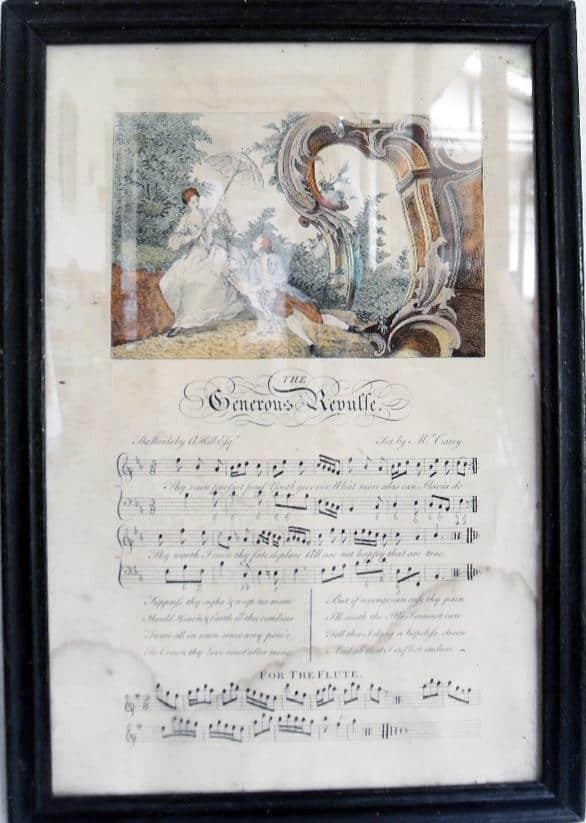 THE
Generous Repulse.
The Words by A. Hill Esqr.
Set by Mr. Carey
Thy vain pursuit fond Youth give over What more alas can Flavia do
Thy worth I own thy fate deplore All are not happy that are true
Suppress thy sighs & weep no more
Should Heav'n & Earth with thee combine
'Twere all in vain since any pow'r
To Crown thy love must alter mine
But if revenge can ease thy pain
I'll sooth the Ills I cannot cure
Tell thee I drag a hopeless chain
And all that I inflict endure
FOR THE FLUTE.